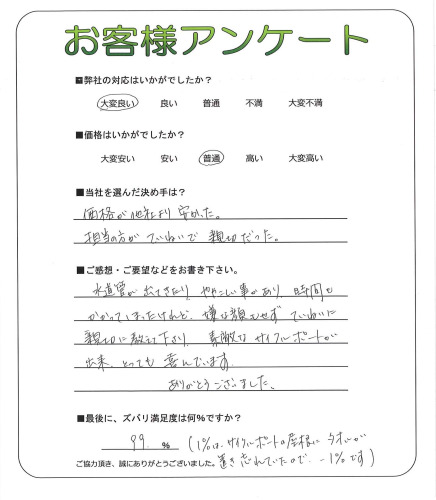 お客様アンケート
■弊社の対応はいかがでしたか？
大変良い 良い 普通 不満 大変不満
■価格はいかがでしたか？
大変安い 安い 普通 高い 大変高い
■当社を選んだ決め手は？
価格が他社より安かった。
担当の方がていねいで親切だった。
■ご感想・ご要望などをお書き下さい。
水道管が出てきたり、ややこしい事があり、時間も
かかってしまったけれど、嫌な顔もせず ていねいに
親切に教えて下さり、素敵なサイクルポートが
出来、とっても喜んでいます。
ありがとうございました。
■最後に、ズバリ満足度は何%ですか？
99 % (1%は、サイクルポートの屋根にタオルが
ご協力頂き、誠にありがとうございました。
置き忘れていたので、-1%です)